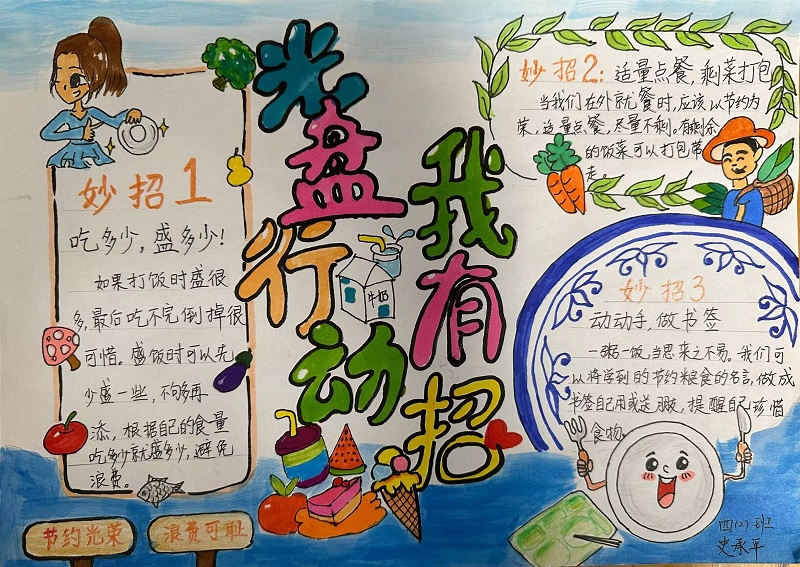 光盘行动
我有招
妙招1
吃多少,盛多少!
如果打饭时盛很
多,最后吃不完倒掉很
可惜。盛饭时可以先
少盛一些,不够再
添,根据自己的食量
吃多少就盛多少,避免
浪费。
妙招2:适量点餐,剩菜打包
当我们在外就餐时,应该以节约为
荣,适量点餐,尽量不剩。有剩余
的饭菜可以打包带
走。
牛奶
妙招3
动动手,做书签
一粥一饭,当思来之不易。我们可
以将学到的节约粮食的名言,做成
书签自己用或送朋友,提醒自己珍惜
食物。
节约光荣
浪费可耻
四(2)班
史承平